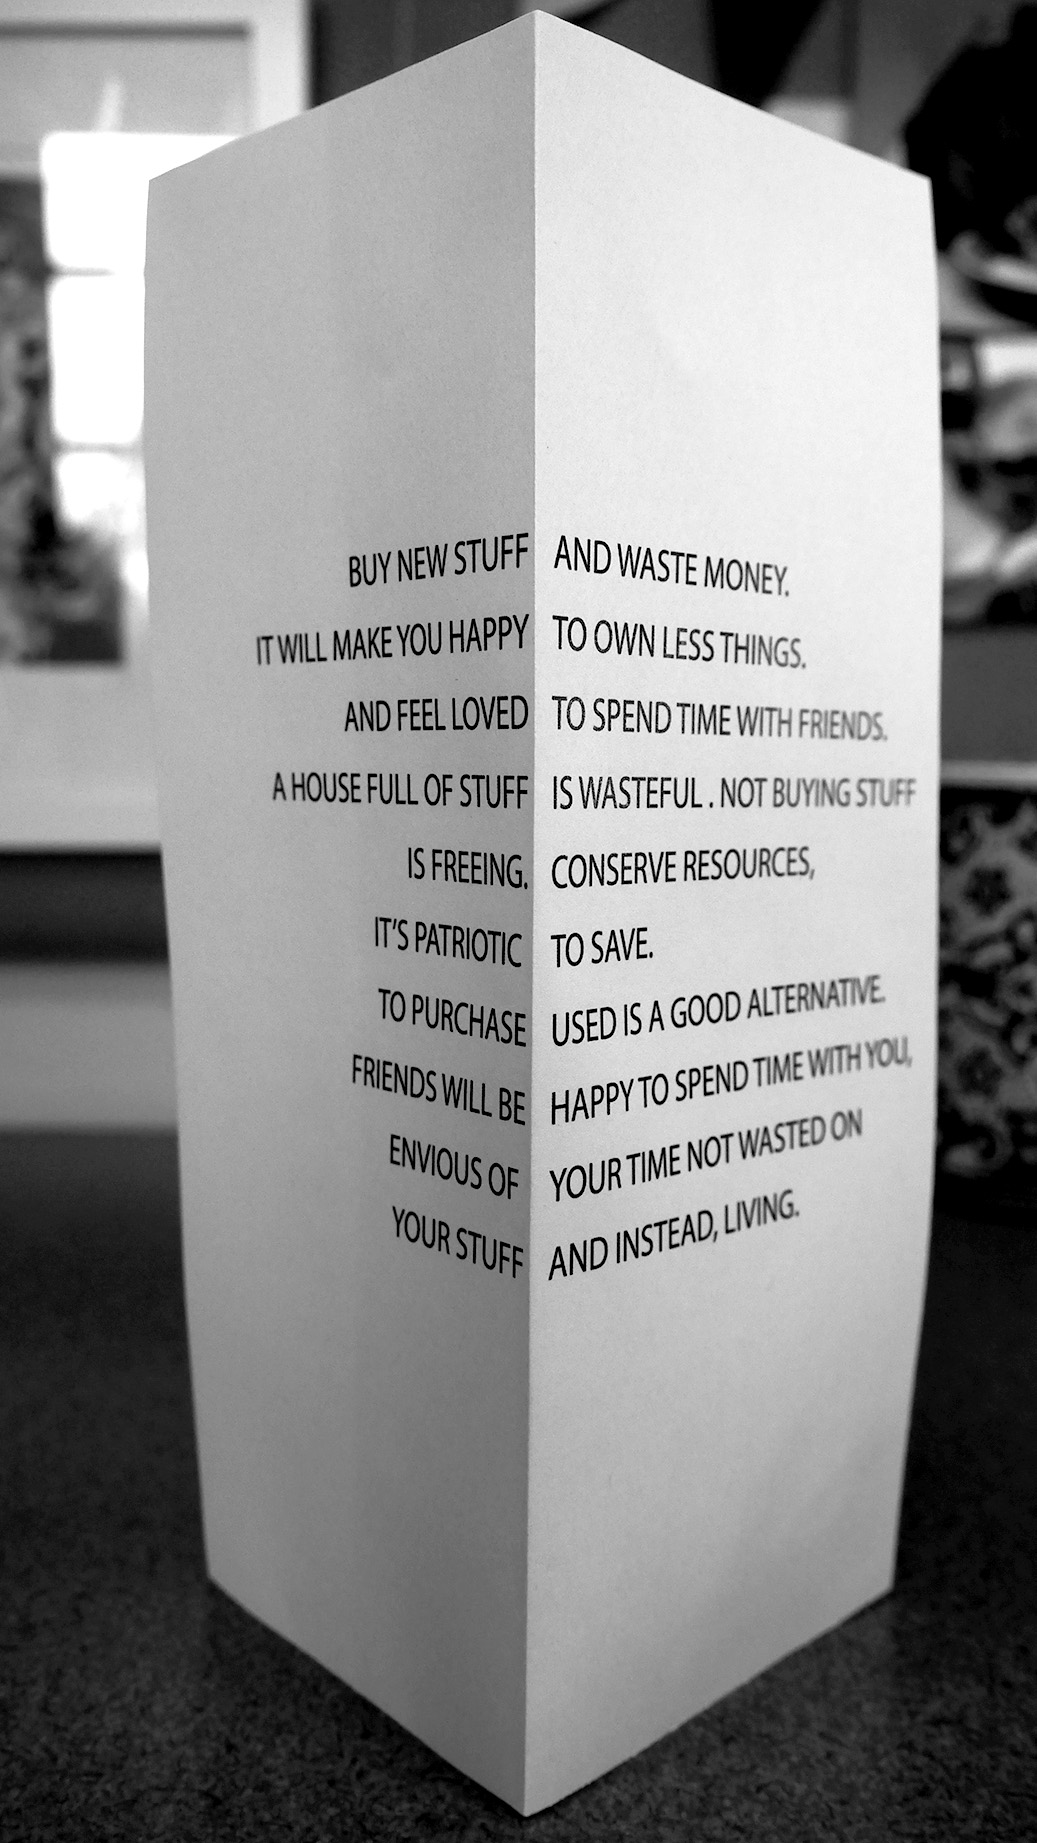 BUY NEW STUFF AND WASTE MONEY.
IT WILL MAKE YOU HAPPY TO OWN LESS THINGS.
AND FEEL LOVED TO SPEND TIME WITH FRIENDS.
A HOUSE FULL OF STUFF IS WASTEFUL . NOT BUYING STUFF
IS FREEING. CONSERVE RESOURCES,
IT'S PATRIOTIC TO SAVE.
TO PURCHASE USED IS A GOOD ALTERNATIVE.
FRIENDS WILL BE HAPPY TO SPEND TIME WITH YOU,
ENVIOUS OF YOUR TIME NOT WASTED ON
YOUR STUFF AND INSTEAD, LIVING.